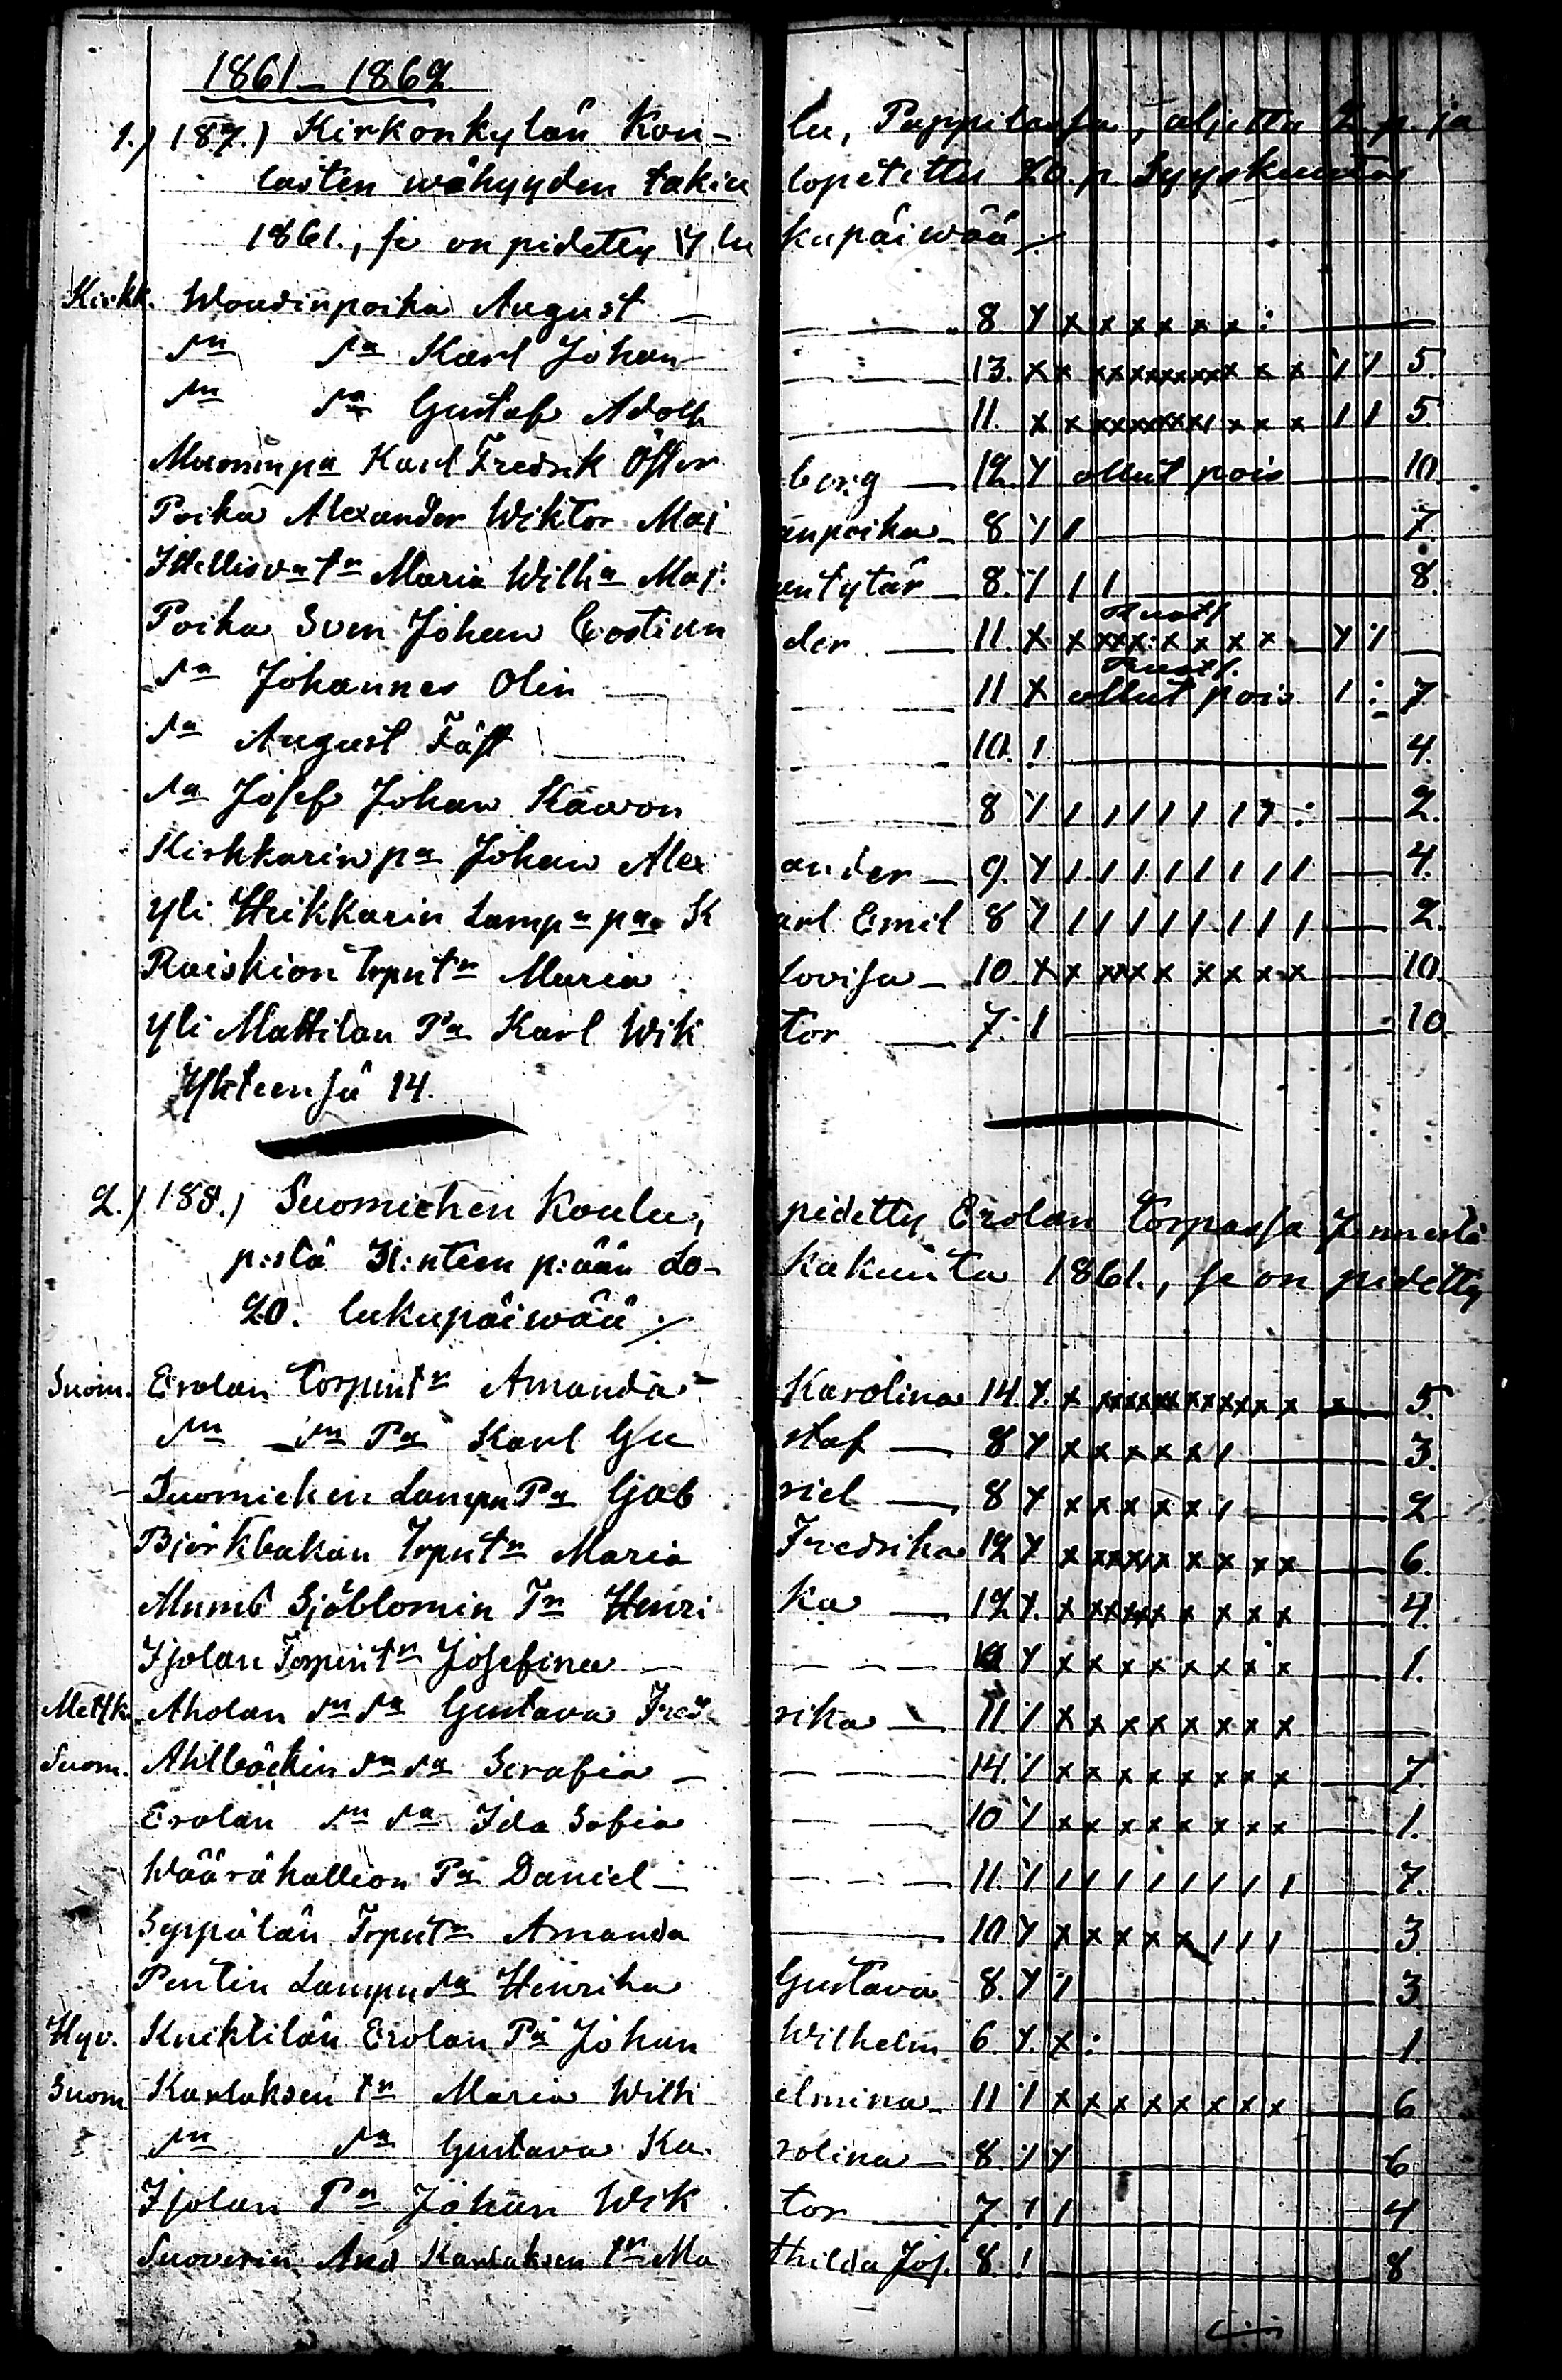 1861–1862
1.) 187.) Kirkonkylän Koulu, Pappilassa, aljettu 2 p. ja
lasten wähyyden takia lopetettu 20 p. Syyskuuta
1861., se on pidetty 14 lukupäiwää ./.
Kirkk. Woudinpoika August — 8 Y x x x x x x : —
sn sa Karl Johan — 13. x x x x x x x x x x x x / / 5.
sn sa Gustaf Adolf — 11. x x x x x x x x x x x / / 5
Muonmpa Karl Fredrik Öster berg — 12. Y ollut pois — 10
Poika Alexander Wiktor Mai anpoika — 8 Y / — 7.
Itellisv a tr Maria Wilha Maj: entytär — 8. Y / / — 8.
Ruots.
Poika Sven Johan Costian der — 11. x x x x x x x x x — Y Y —
Ruots.
sa Johannes Olin — 11 x ollut pois / : 7
sa August Fäst — 10. ! — 4.
sa Josef Johan Käwon — 8 Y / / / / / / Y : — 2.
Kirkkarin pa Johan Alex ander — 9. Y / / / / / / / / — 4.
Yli Heikkarin Lamp n pa K arl Emil 8 Y / / / / / / / / — 2.
Raiskion Trpn tr Maria Lovisa — 10 Y x x x x x x x x x — 10.
Yli Mattilan Pa Karl Wik tor — 7. ! — 10
Yhteensä 14.
2.) 188.) Suomichen Koulu, pidetty Erolan torpassa 7:nnestä
p:stä 31:nteen p:ään Lo- kakuuta 1861., se on pidetty
20. lukupäiwää ./.
Suom. Erolan Torpint r Amanda Karolina 14 Y. x x x x x x x x x x x x — 5.
sn sn Pa Karl Gu staf — 8 Y x x x x x / — 3.
Suomichen Lampn Pa Gab riel — 8 Y x x x x x / — 2
Björkbakan Trpn tr Maria Fredrika 12 Y x x x x x x x x x — 6.
Munst Sjöblomin Tr Henri ka — 12 Y. x x x x x x x x x — 4.
Isolan Torpin tr Josefina — Y x x x x x x x x — 1.
Metsk. Aholan sn sa Gustava Fred rika — 11 Y x x x x x x x x —
Suom. Ahlbäckin sn sa Serafia — 14. Y x x x x x x x x — 7.
Erolan sn sa Ida Sofia — 10 Y x x x x x x x x — 1.
Wäärähallion Pa Daniel — 11. Y / / / / / / / / — 7.
Syppälän Trpn tr Amanda — 10 Y x x x x x / / / — 3.
Pentin Lampn sa Henrika Gustava 8. Y Y — 3
Hyv. Knihtilän Erolan Pa Johan Wilhelm 6. Y. x : — 1.
Suom Karlaksen tr Maria Wilh elmina — 11 Y x x x x x x x x — 6
sn sa Gustava Ka rolina — 8. Y Y — 6
Isolan Pa Johan Wik tor — 7. ! / — 4
Suoverin And Karlaksen tr Ma thilda Jos. 8. ! — 8